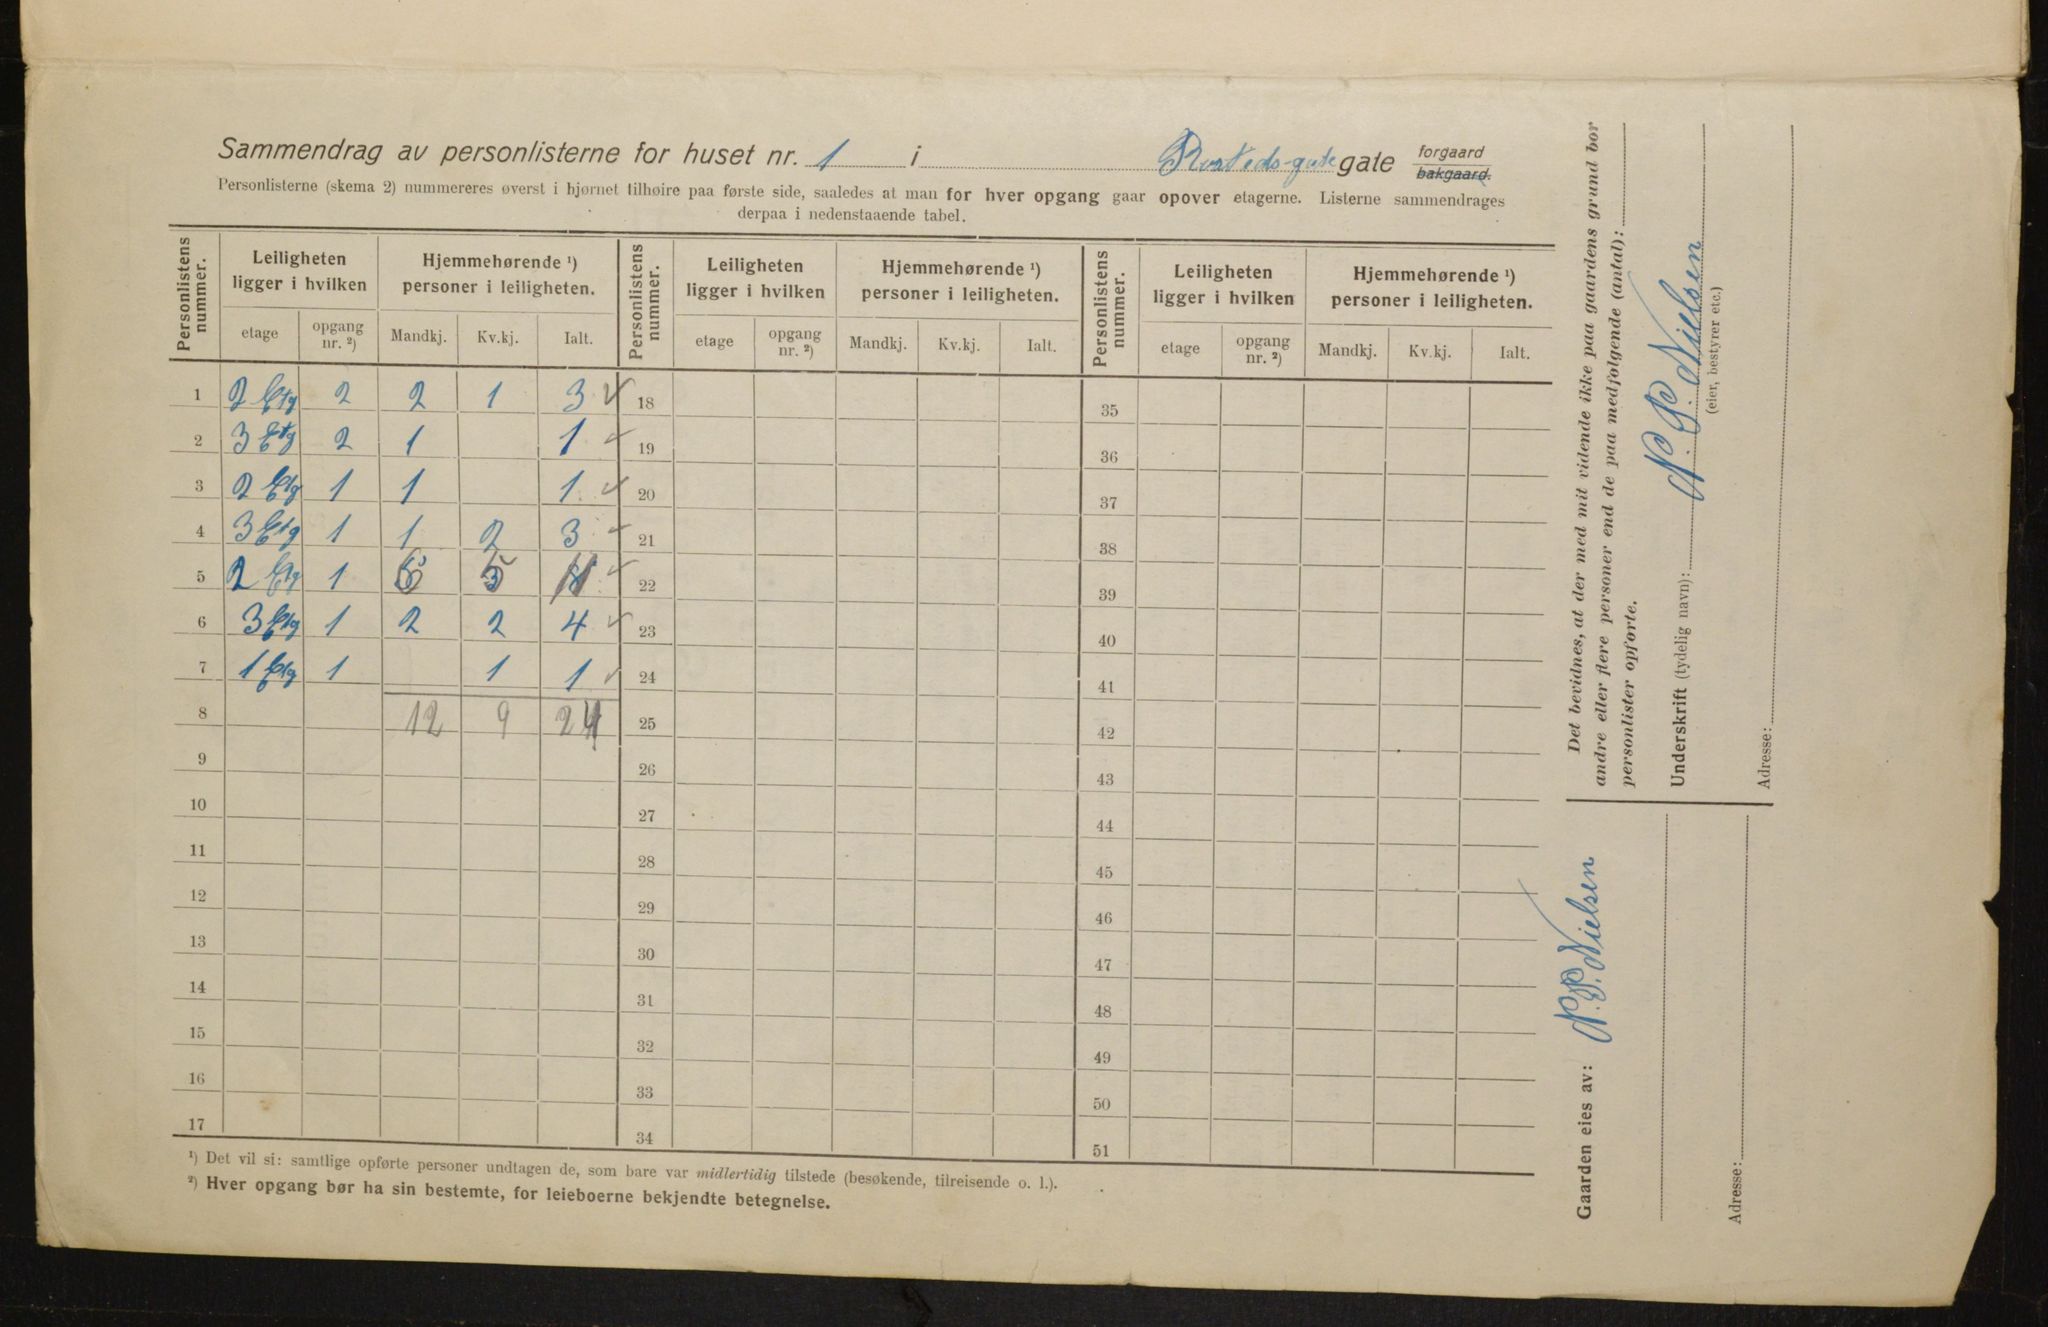 Sammendrag av personlisterne for huset nr. 1 i Rosteds-gate gate forgaard bakgaard.
Personlisterne (skema 2) nummereres øverst i hjørnet tilhøire paa første side, saaledes at man for hver opgang gaar opover etagerne. Listerne sammendrages
derpaa i nedenstaaende tabel.
Personlistens nummer. Leiligheten ligger i hvilken Hjemmehørende ¹) personer i leiligheten. Personlistens nummer. Leiligheten ligger i hvilken Hjemmehørende ¹) personer i leiligheten. Personlistens nummer. Leiligheten ligger i hvilken Hjemmehørende ¹) personer i leiligheten.
etage opgang nr. ²) Mandkj. Kv.kj. Ialt. etage opgang nr. ²) Mandkj. Kv.kj. Ialt. etage opgang nr. ²) Mandkj. Kv.kj. Ialt.
1 2 Etg 2 2 1 3 18 35
2 3 Etg 2 1 1 19 36
3 2 Etg 1 1 1 20 37
4 3 Etg 1 1 2 3 21 38
5 2 Etg 1 5 11 22 39
6 3 Etg 1 2 2 4 23 40
7 1 Etg 1 1 1 24 41
8 12 9 24 25 42
9 26 43
10 27 44
11 28 45
12 29 46
13 30 47
14 31 48
15 32 49
16 33 50
17 34 51
¹) Det vil si: samtlige opførte personer undtagen de, som bare var midlertidig tilstede (besøkende, tilreisende o. l.).
²) Hver opgang bør ha sin bestemte, for leieboerne bekjendte betegnelse.
Det bevidnes, at der med mit vidende ikke paa gaardens grund bor
andre eller flere personer end de paa medfølgende (antal):
personlister opførte.
Underskrift (tydelig navn): N. P. Nielsen
(eier, bestyrer etc.)
Adresse:
Gaarden eies av: N. P. Nielsen
Adresse: